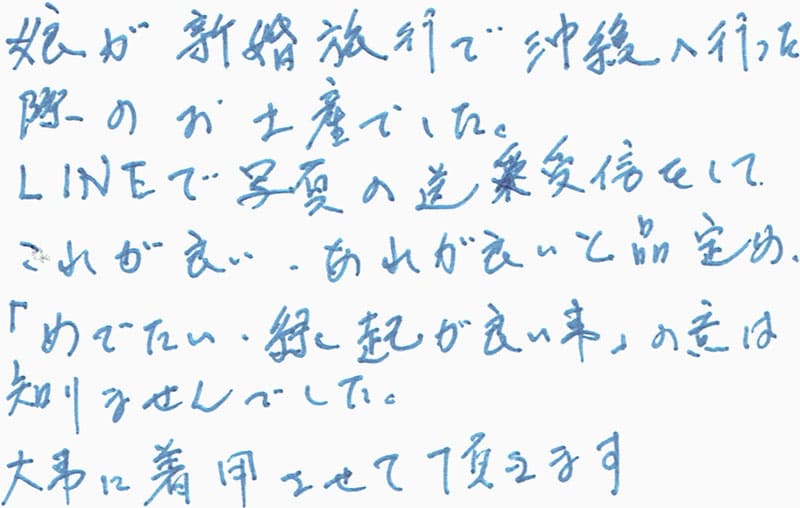 娘が新婚旅行で沖縄へ行った
際のお土産でした。
LINEで写真の送受信をして
これが良い、あれが良いと品定め、
「めでたい・縁起が良い事」の意は
知りませんでした。
大事に着用させて頂きます